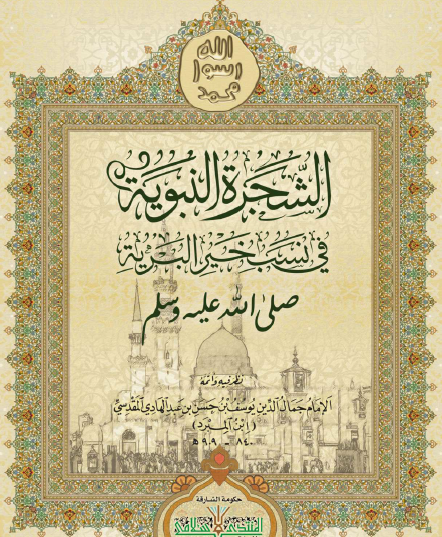 الله
رسول
محمد
الشجرة النبوية
في نسب خير البرية
صلى الله عليه وسلم
نظر فيه وأتمه
الإمام جمال الدين يوسف بن حسن بن عبد الهادي المقدسي
(ابن المبرد)
٨٤٠ - ٩٠٩ هـ
حكومة الشارقة